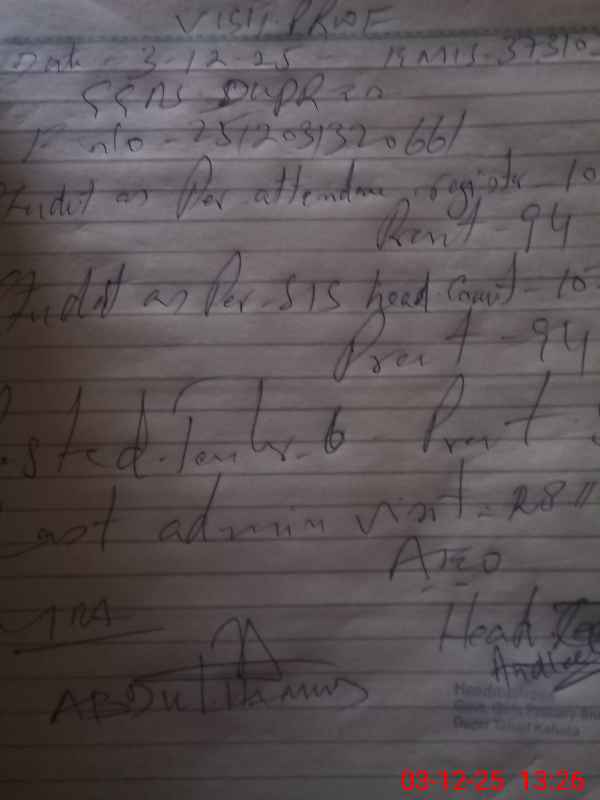 VISIT PROOF
Date - 3-12-25 - EMIS-37310
GGPS DUPRAN
F no - 2512031320661
Studet as Per attendane registr - 10
Prent - 94
Studet as Per SIS head Count - 10
Prent - 94
sted Teachr. 6 Prent
Last admin visit - 28 11
AEO
Head
ABDUL
Govt. Girls Primary
Kahuta
03-12-25 13:26